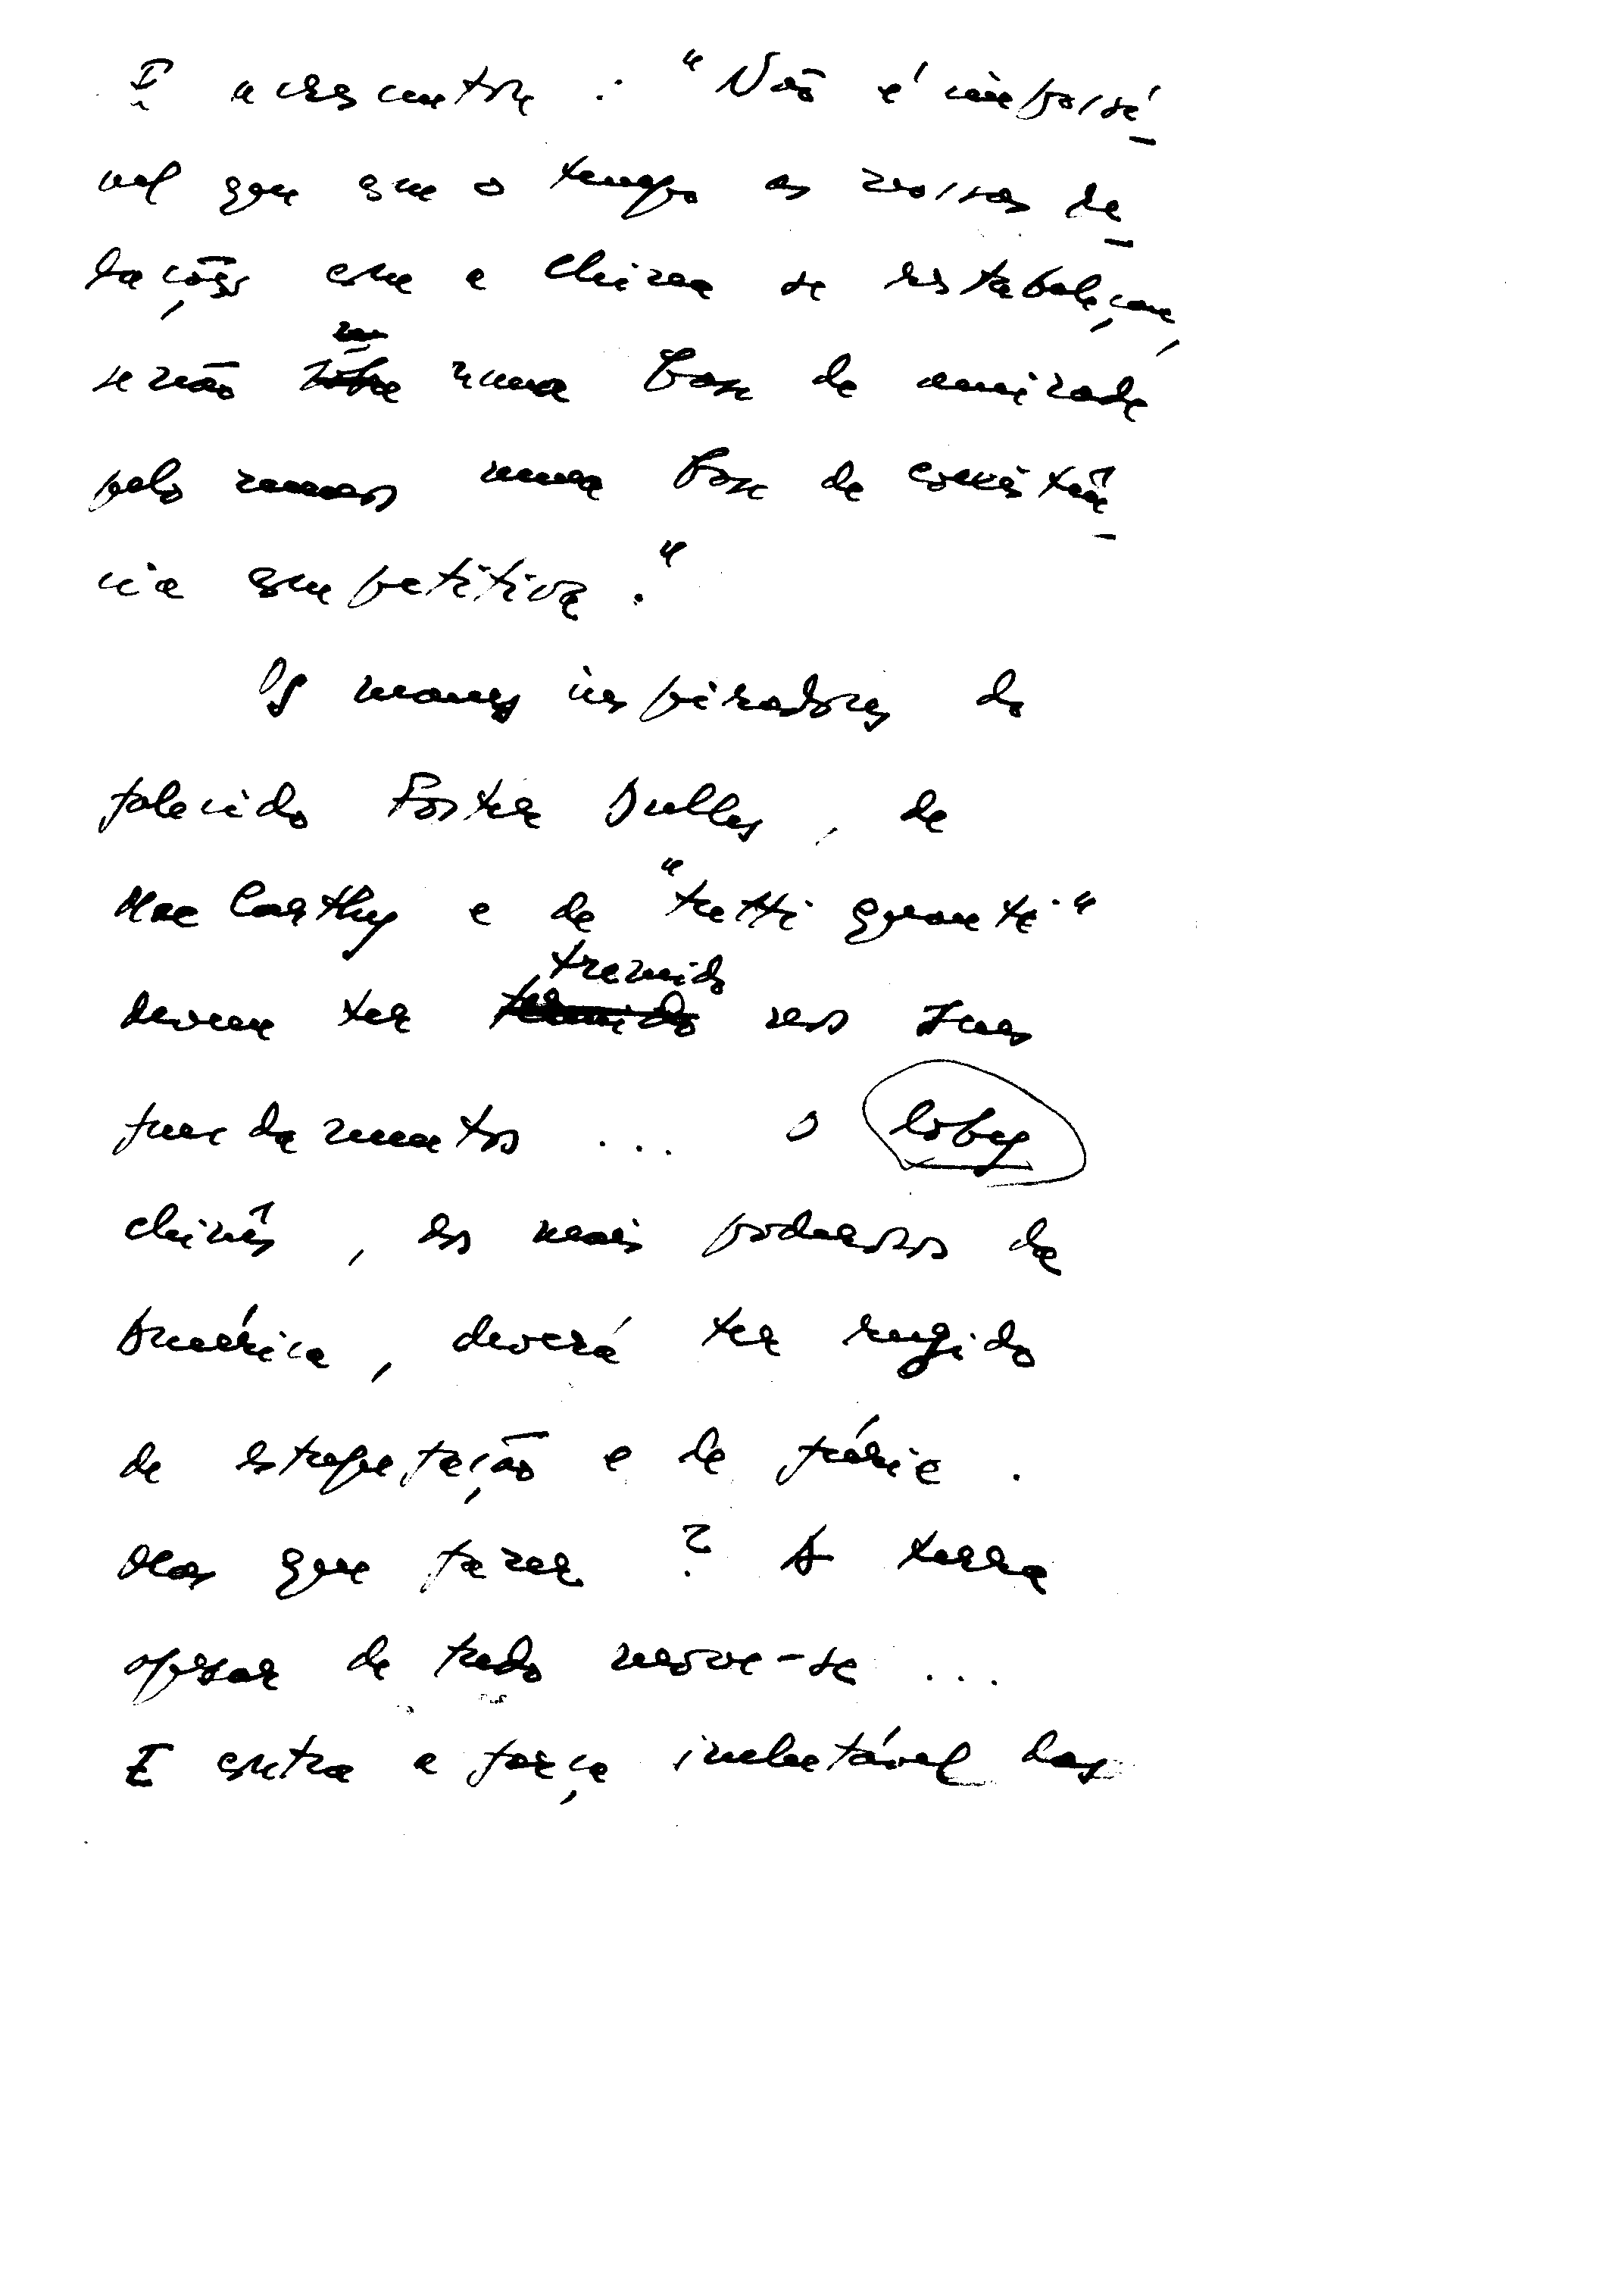 E acrescentou : "Não é impossí-
vel que com o tempo as nossas re-
lações com a China se restabeleçam,
senão numa base de amizade
pelo menos numa base de coexistên-
cia competitiva."
Os manes inspiradores do
falecido Foster Dulles, de
Mac Carthy e de "tutti quanti"
devem ter tremido nos seus
fundamentos ... O loby
chinês, dos mais poderosos da
América, deverá ter rugido
de estupefação e de fúria.
Mas que fazer? A terra
apesar de tudo move-se ...
E contra a força inelutável das